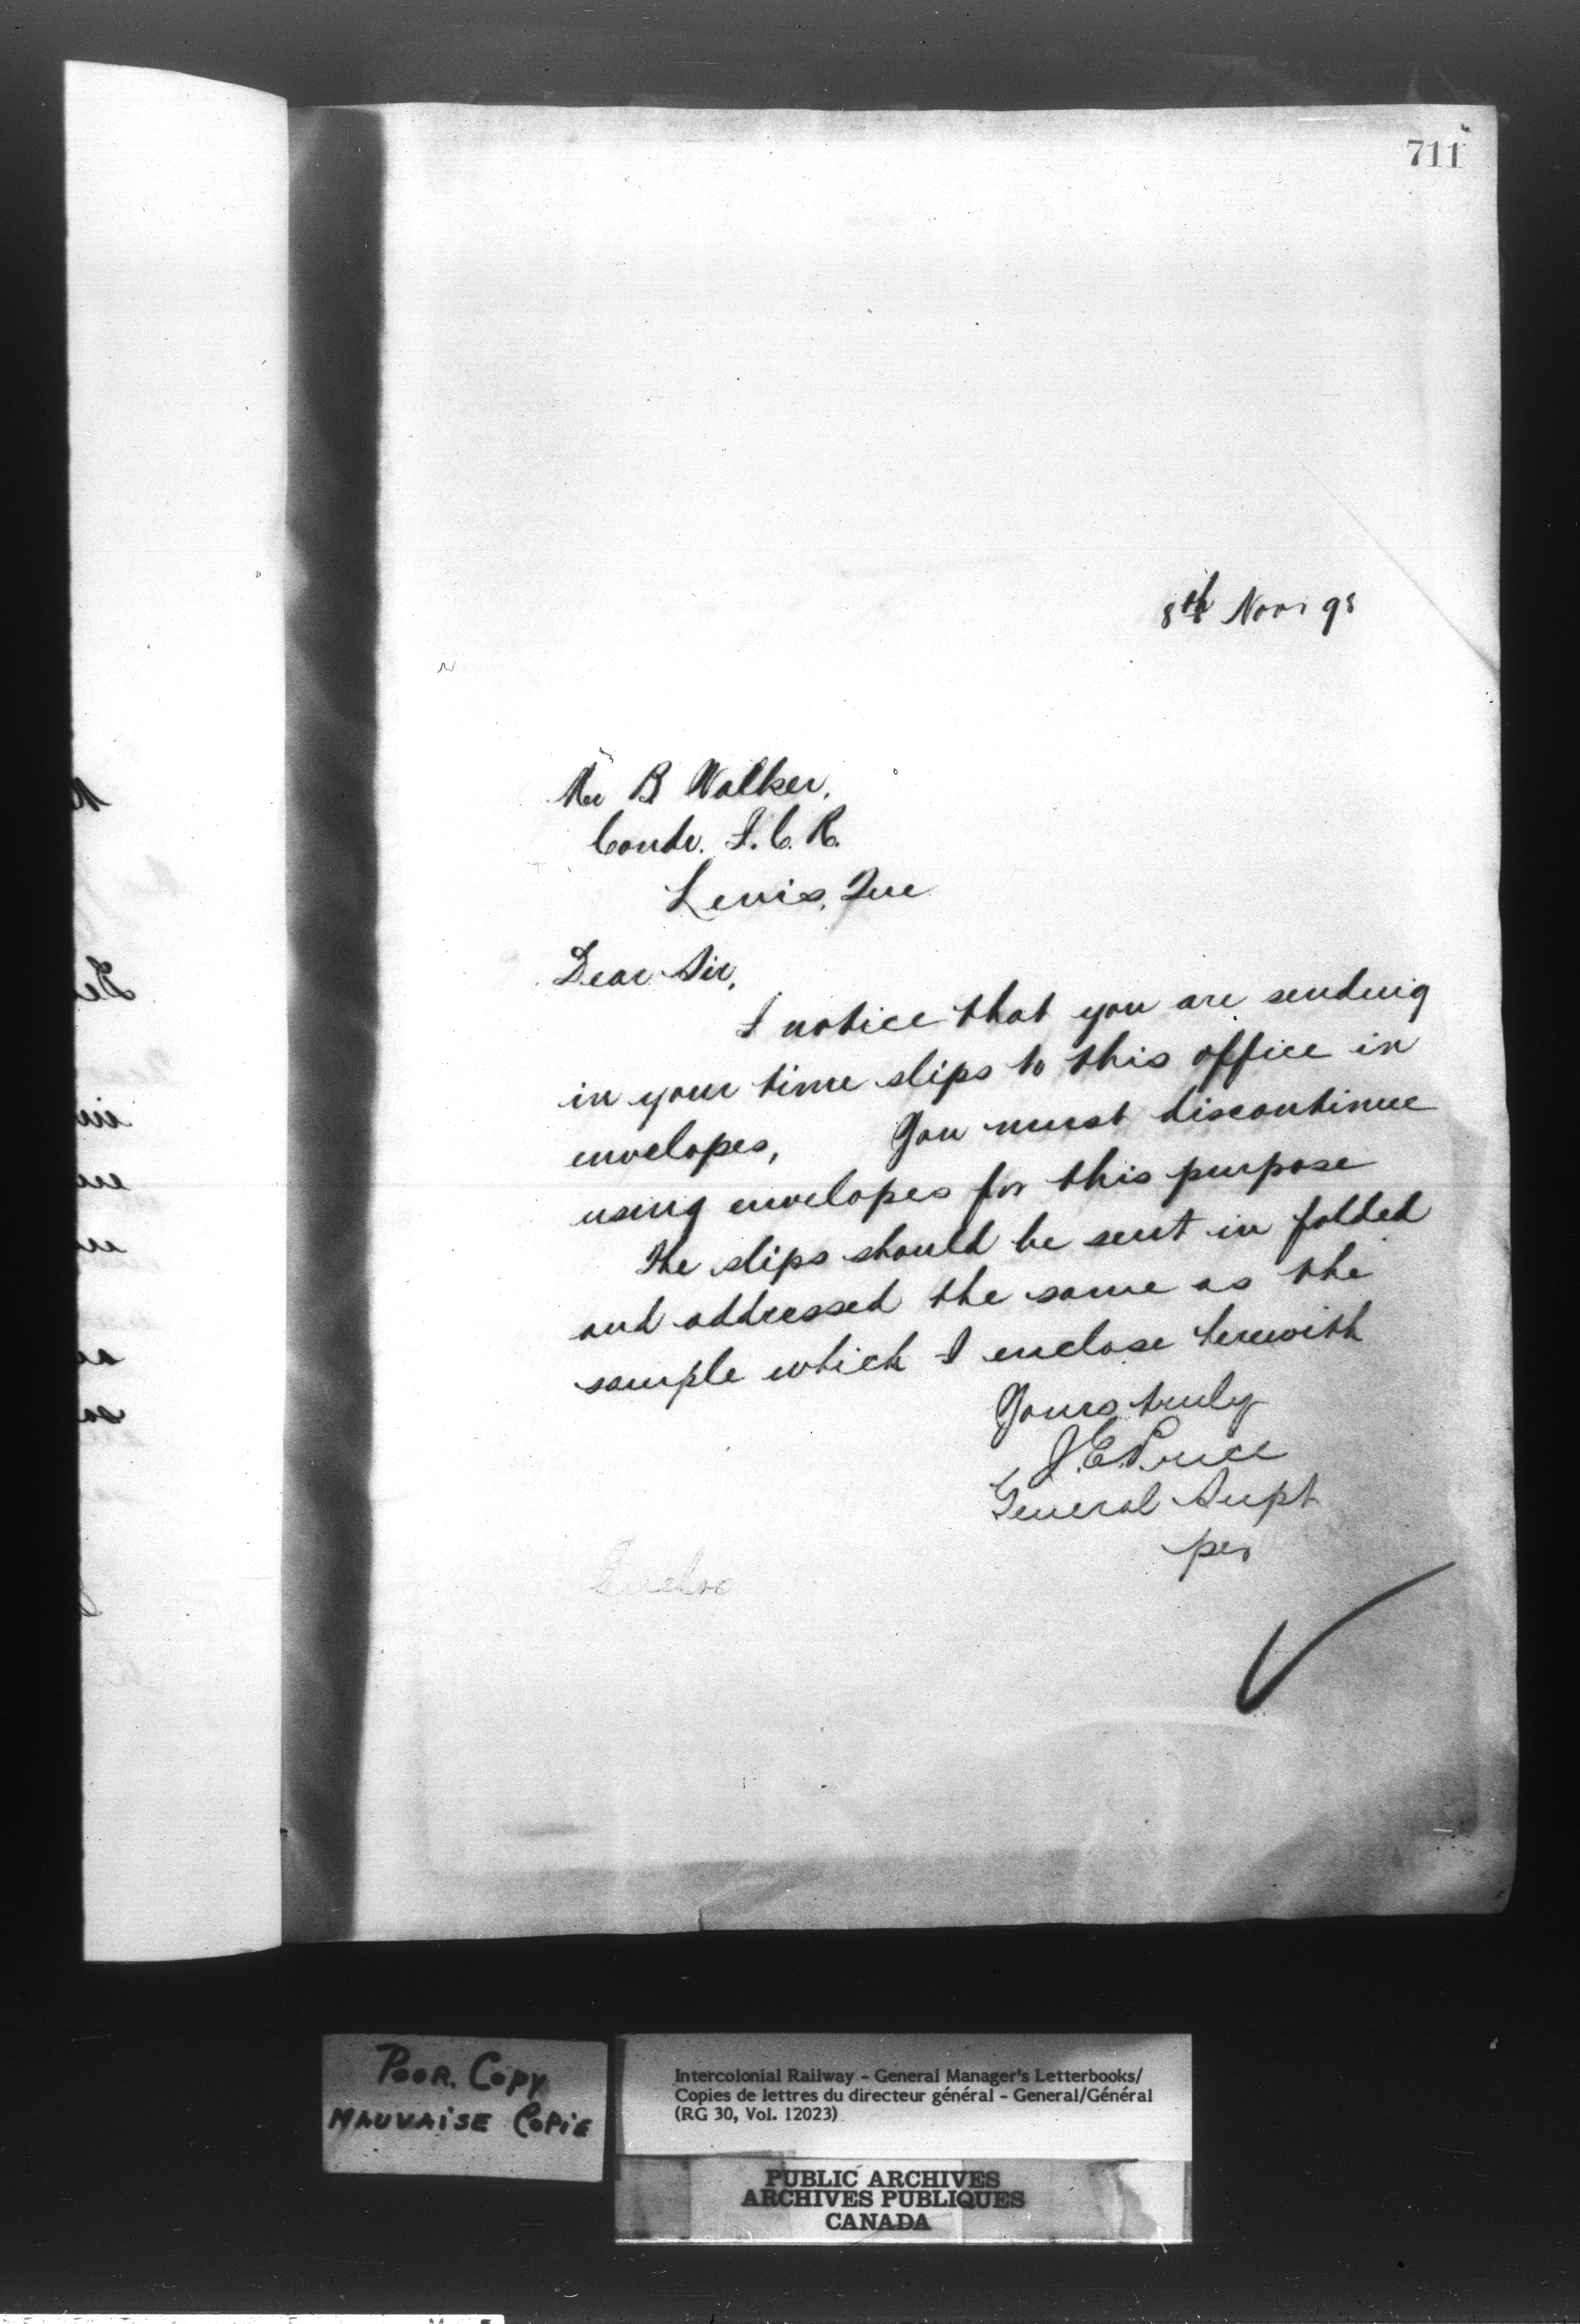 711
8th Nov 98
Mr B Walker,
Condr. I.C.R.
Levis, Que
Dear Sir,
I notice that you are sending
in your time slips to this office in
envelopes, You must discontinue
using envelopes for this purpose
The slips should be sent in folded
and addressed the same as the
sample which I enclose herewith
Yours truly
J.E. Price
General Supt
per
Poor. Copy
Mauvaise Copie
Intercolonial Railway - General Manager's Letterbooks/
Copies de lettres du directeur général - General/Général
(RG 30, Vol. 12023)
PUBLIC ARCHIVES
ARCHIVES PUBLIQUES
CANADA